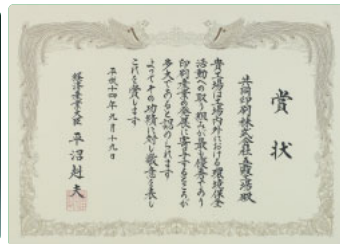 賞状
共同印刷株式会社五霞工場殿
貴工場は工場内外における環境保全
活動への取り組みが最も優秀であり
印刷産業の発展に寄与するところが
多大であると認められます
よってその功績に対し敬意を表し
これを賞します
平成十四年九月十九日
経済産業大臣 平沼赳夫